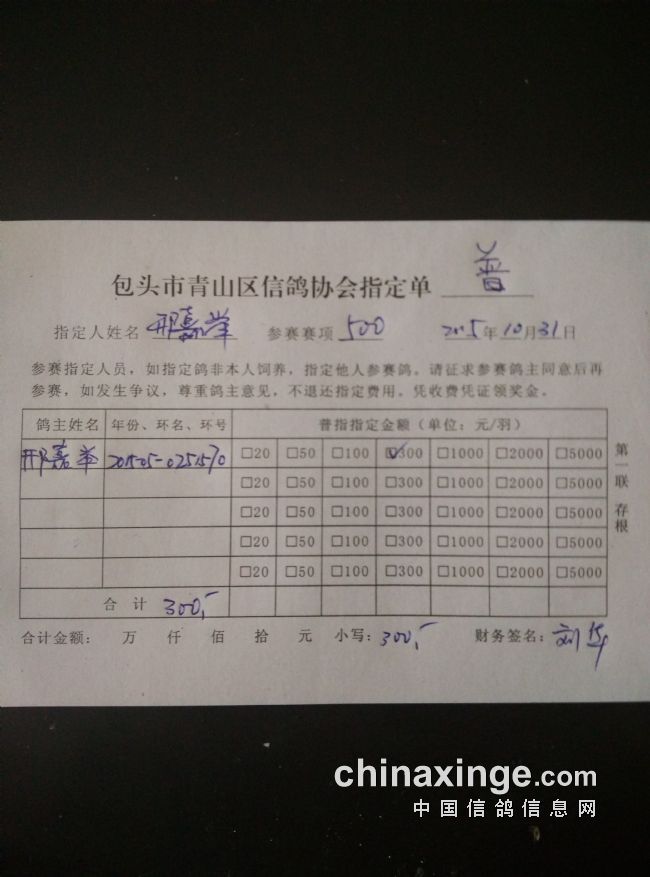 包头市青山区信鸽协会指定单 普
指定人姓名 邢嘉举 参赛赛项 500 2015年10月31日
参赛指定人员，如指定鸽非本人饲养，指定他人参赛鸽。请征求参赛鸽主同意后再
参赛，如发生争议，尊重鸽主意见，不退还指定费用。凭收费凭证领奖金。
鸽主姓名 年份、环名、环号 普指指定金额（单位：元/羽）
邢嘉举 2015-05-0251570 □20 □50 □100 ☑300 □1000 □2000 □5000
□20 □50 □100 □300 □1000 □2000 □5000
□20 □50 □100 □300 □1000 □2000 □5000
□20 □50 □100 □300 □1000 □2000 □5000
□20 □50 □100 □300 □1000 □2000 □5000
合计 300,-
合计金额： 万 仟 佰 拾 元 小写：300,- 财务签名：刘华
第一联 存根
chinaxinge.com
中国信鸽信息网